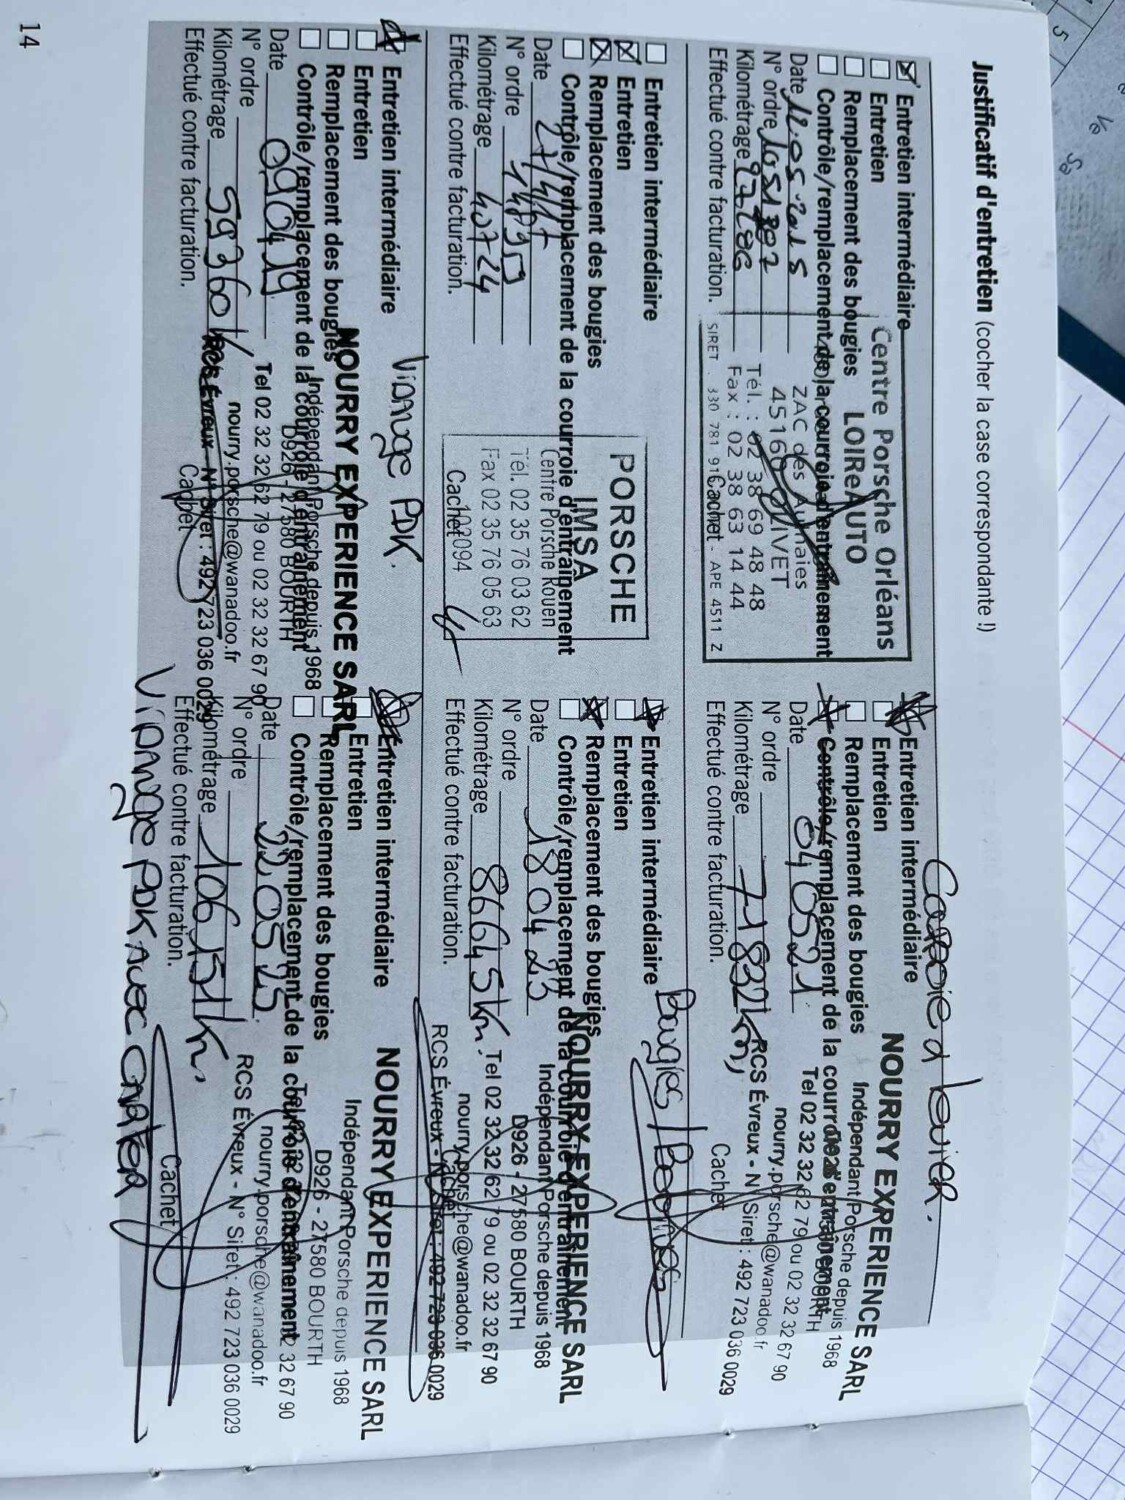 Justificatif d'entretien (cocher la case correspondante !)
Entretien intermédiaire
Entretien
Remplacement des bougies
Contrôle/remplacement de la courroie d'entraînement
Date 11.05.2015
N° ordre
Kilométrage
Effectué contre facturation.
Centre Porsche Orléans
LOIRE AUTO
ZAC des Aulnaies
45160 OLIVET
Tél. : 02 38 69 48 48
Fax : 02 38 63 14 44
SIRET . 330 781 91 - APE 4511 Z
Cachet
Entretien intermédiaire
Entretien
Remplacement des bougies
Contrôle/remplacement de la courroie d'entraînement
Date 27/4/17
N° ordre
Kilométrage 40724
Effectué contre facturation.
PORSCHE
IMSA
Centre Porsche Rouen
Tél. 02 35 76 03 62
Fax 02 35 76 05 63
102094
Cachet
Entretien intermédiaire
Vidange PDK.
Entretien
Remplacement des bougies
Contrôle/remplacement de la courroie d'entraînement
Date 090419
N° ordre
Kilométrage 59360 k
Effectué contre facturation.
NOURRY EXPERIENCE SARL
Indépendant Porsche depuis 1968
D926 - 27580 BOURTH
Tel 02 32 32 62 79 ou 02 32 32 67 90
nourry.porsche@wanadoo.fr
RCS Évreux - N° Siret : 492 723 036 0029
Cachet
Courroie d
Entretien intermédiaire
Entretien
Remplacement des bougies
Contrôle/remplacement de la courroie d'entraînement
Date 040521
N° ordre
Kilométrage 71832 km,
Effectué contre facturation.
NOURRY EXPERIENCE SARL
Indépendant Porsche depuis 1968
Tel 02 32 32 62 79 ou 02 32 32 67 90
nourry.porsche@wanadoo.fr
RCS Évreux - N° Siret : 492 723 036 0029
Cachet
Entretien intermédiaire
Bougies /
Entretien
Remplacement des bougies
Contrôle/remplacement de la courroie d'entraînement
Date 180423
N° ordre
Kilométrage 86645 km.
Effectué contre facturation.
NOURRY EXPERIENCE SARL
Indépendant Porsche depuis 1968
D926 - 27580 BOURTH
Tel 02 32 32 62 79 ou 02 32 32 67 90
nourry.porsche@wanadoo.fr
RCS Évreux - N° Siret : 492 723 036 0029
Cachet
Entretien intermédiaire
Entretien
Remplacement des bougies
Contrôle/remplacement de la courroie d'entraînement
Date 220525
N° ordre
Kilométrage 106151 km.
Effectué contre facturation.
NOURRY EXPERIENCE SARL
Indépendant Porsche depuis 1968
D926 - 27580 BOURTH
nourry.porsche@wanadoo.fr
RCS Évreux - N° Siret : 492 723 036 0029
Cachet
Vidange PDK Avec
14